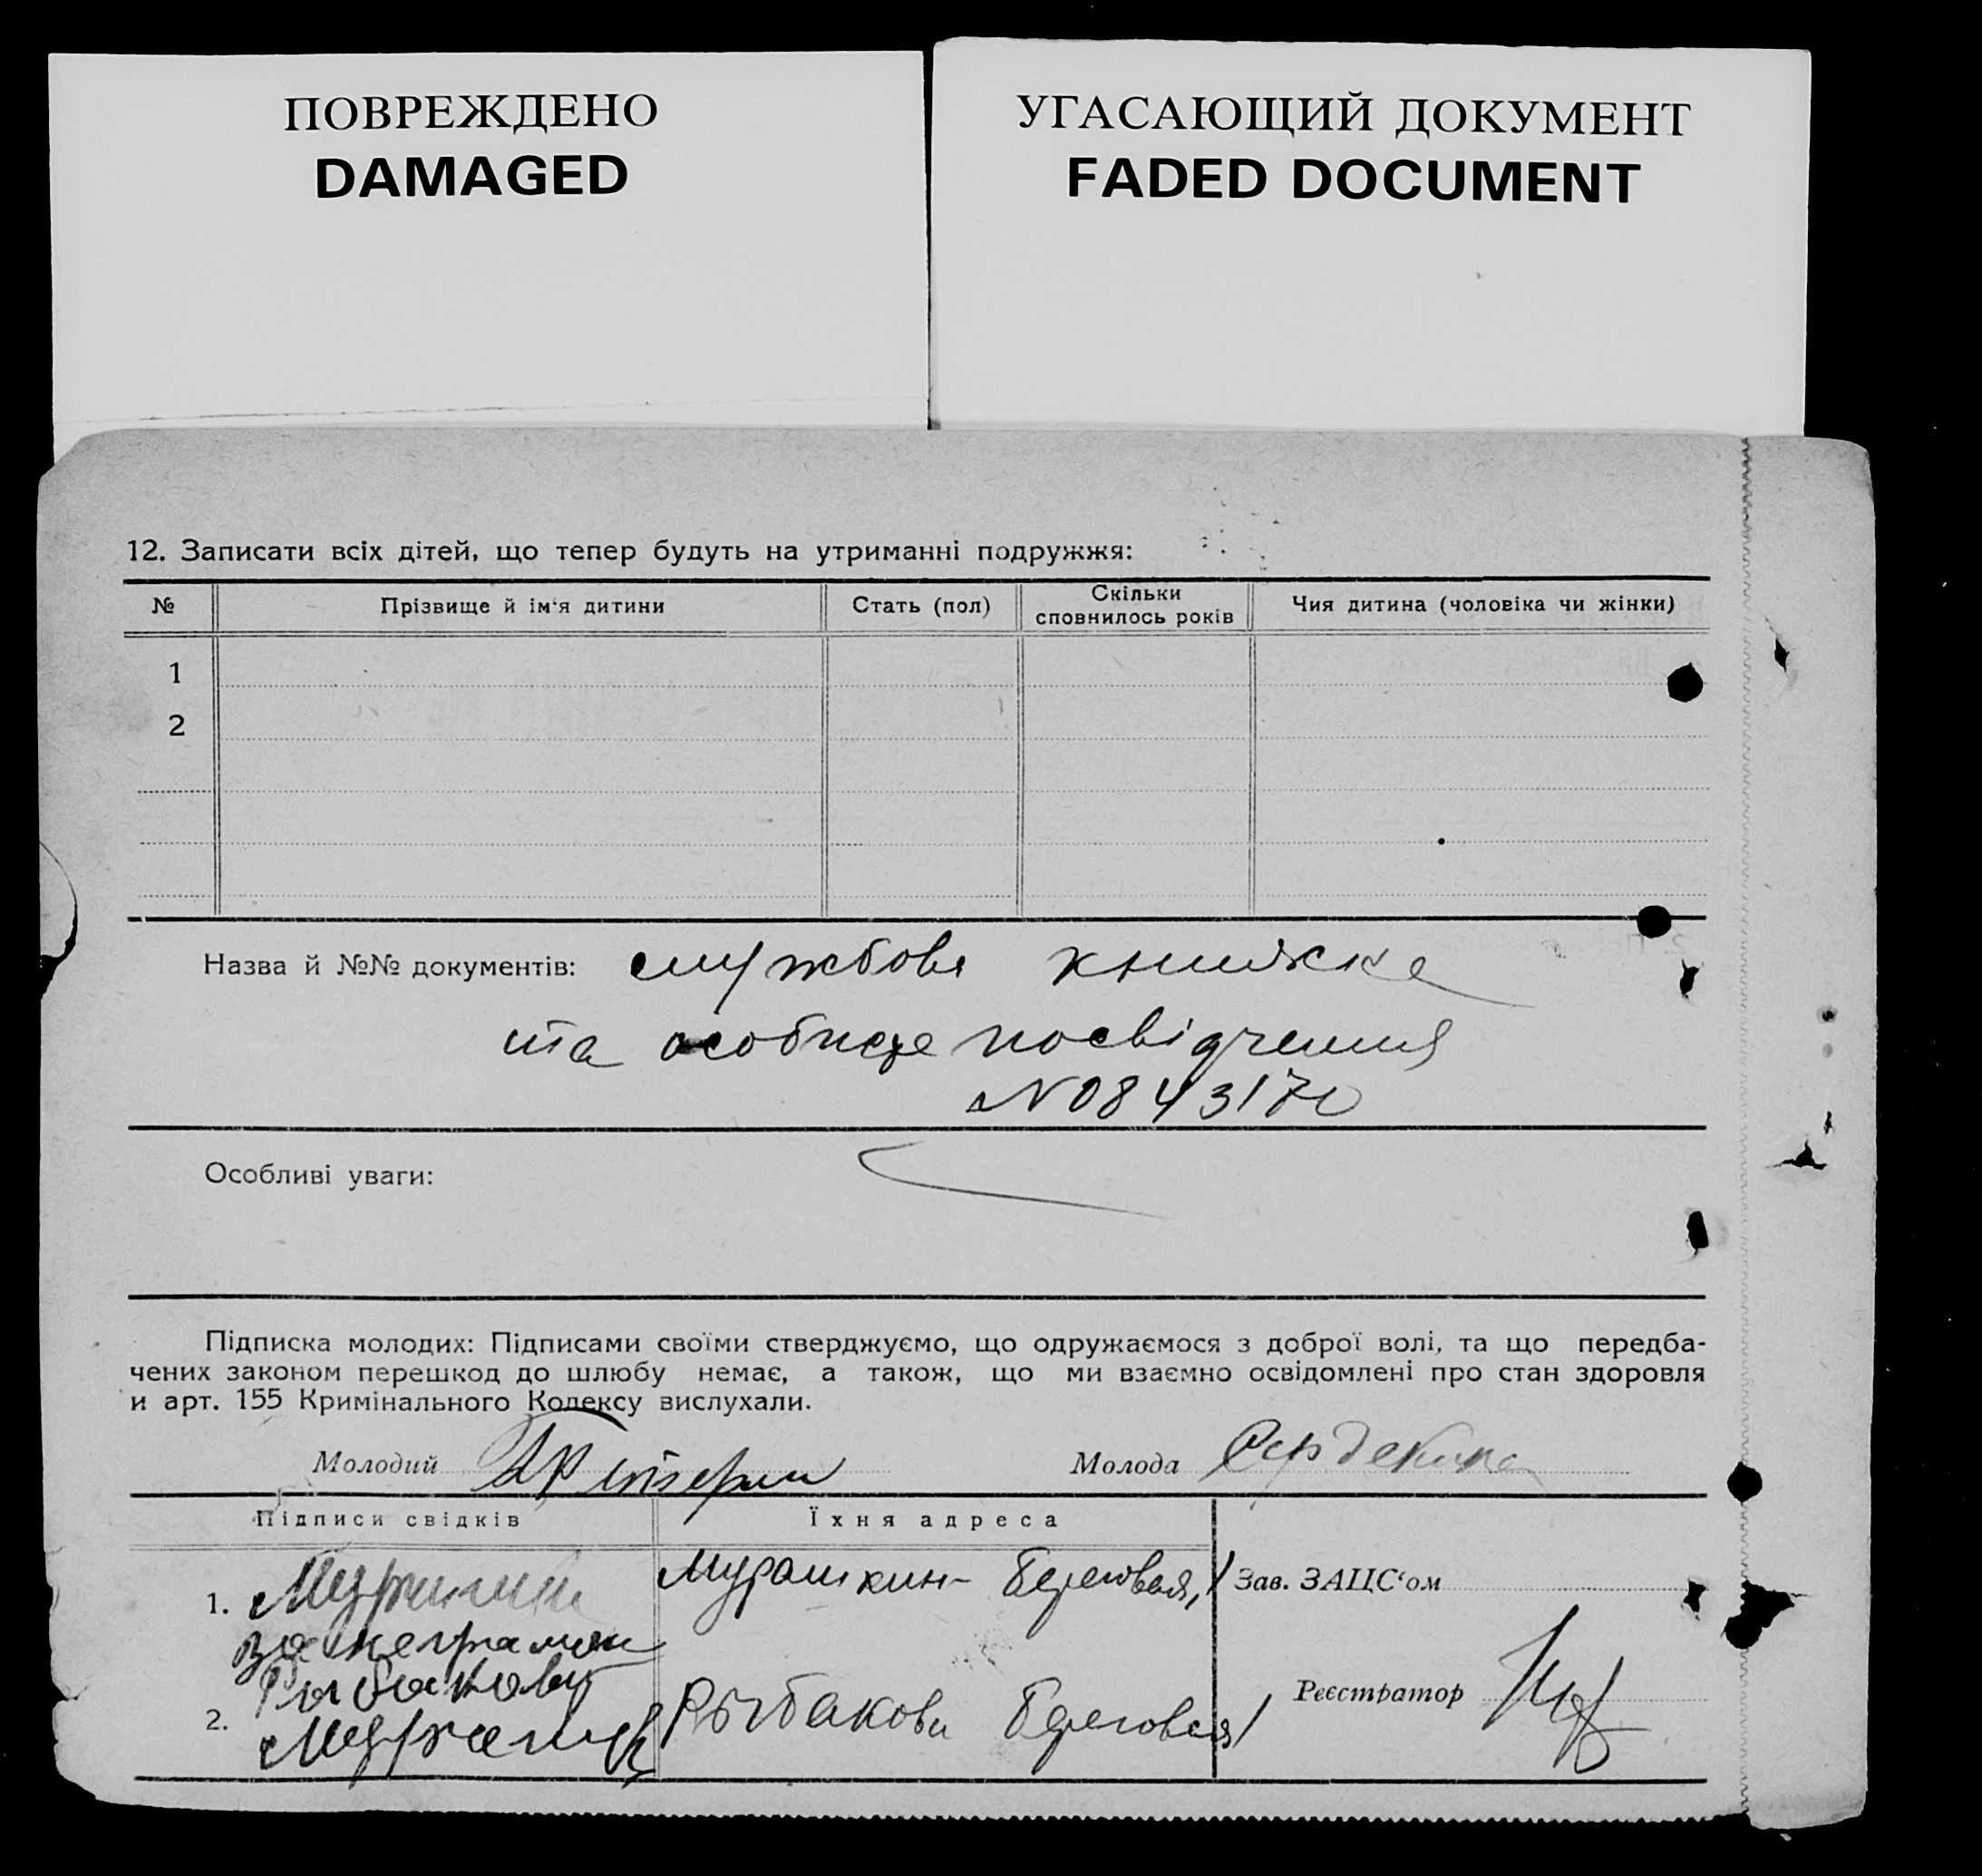 ПОВРЕЖДЕНО
DAMAGED
УГАСАЮЩИЙ ДОКУМЕНТ
FADED DOCUMENT
12. Записати всіх дітей, що тепер будуть на утриманні подружжя:
№ Прізвище й ім'я дитини Стать (пол) Скільки сповнилось років Чия дитина (чоловіка чи жінки)
1
2
Назва й №№ документів: службова книжка
та особисте посвідчення
N 0843170
Особливі уваги:
Підписка молодих: Підписами своїми стверджуємо, що одружаємося з доброї волі, та що передба-
чених законом перешкод до шлюбу немає, а також, що ми взаємно освідомлені про стан здоровля
и арт. 155 Кримінального Кодексу вислухали.
Молодий Молода
Підписи свідків Їхня адреса
1. Мурашкин- Береговая, 1 Зав. ЗАЦС'ом
за неграмотн
Рыбакову
2. Рыбакова Береговая 1 Реєстратор